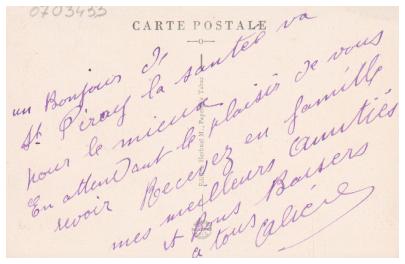 0703453
CARTE POSTALE
un Bonjour de
St Péray la santée va
pour le mieux
En attendant le plaisir de vous
revoir Recevez en famille
mes meilleurs amitiés
et Bons Baisers
à tous